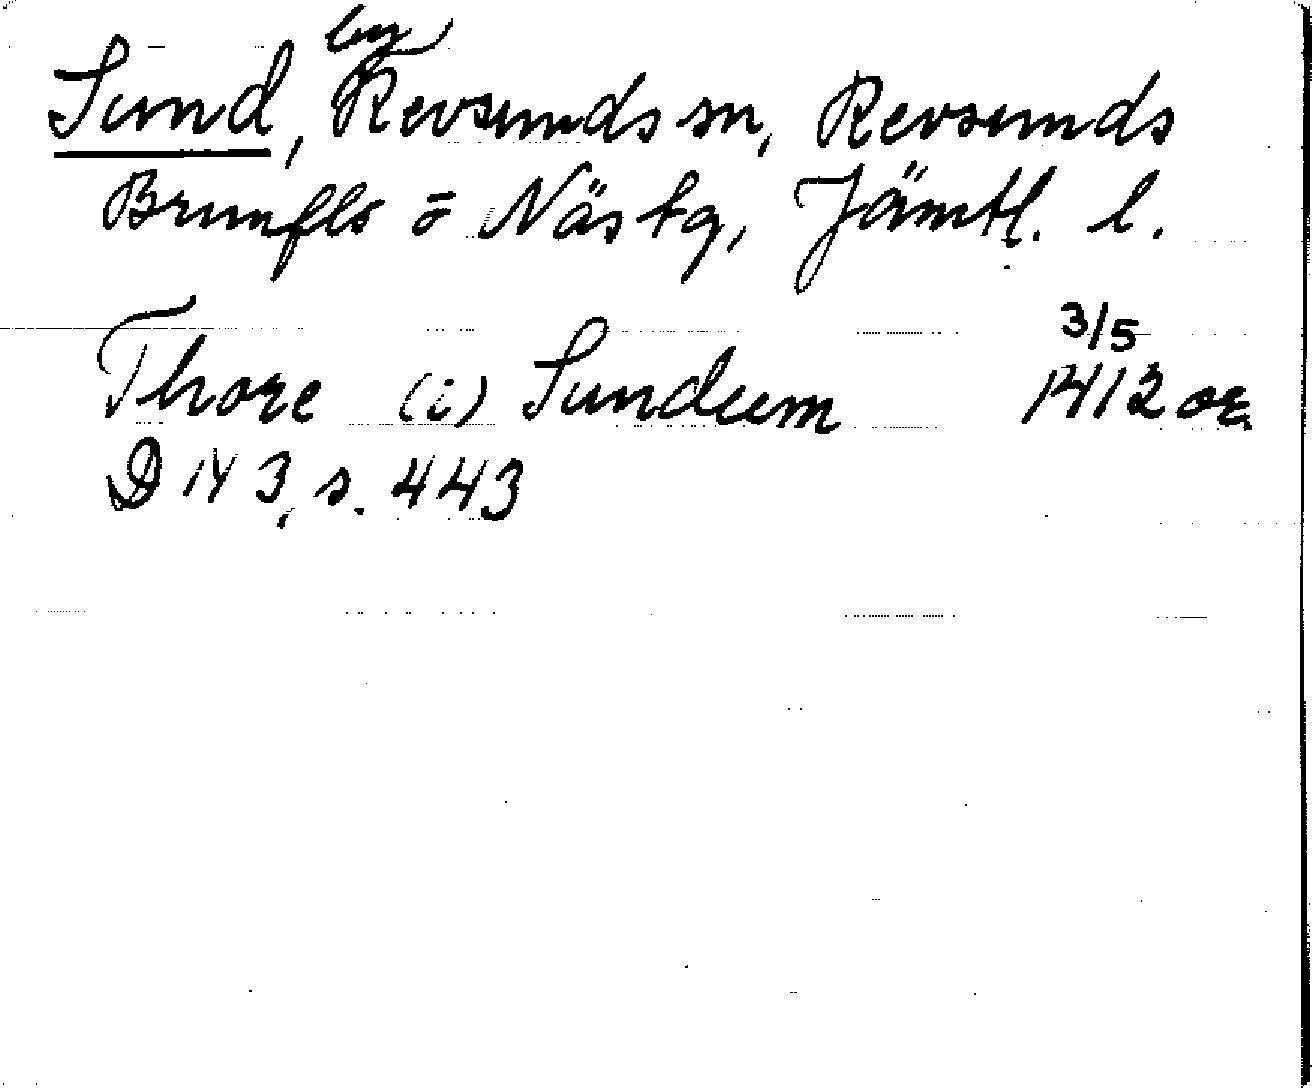 Sund, by Revsunds sn, Revsunds
Brunflo o Näs tg, Jämtl. l.
Thore (i) Sundum 3/5 1412 or.
D IV 3, s. 443